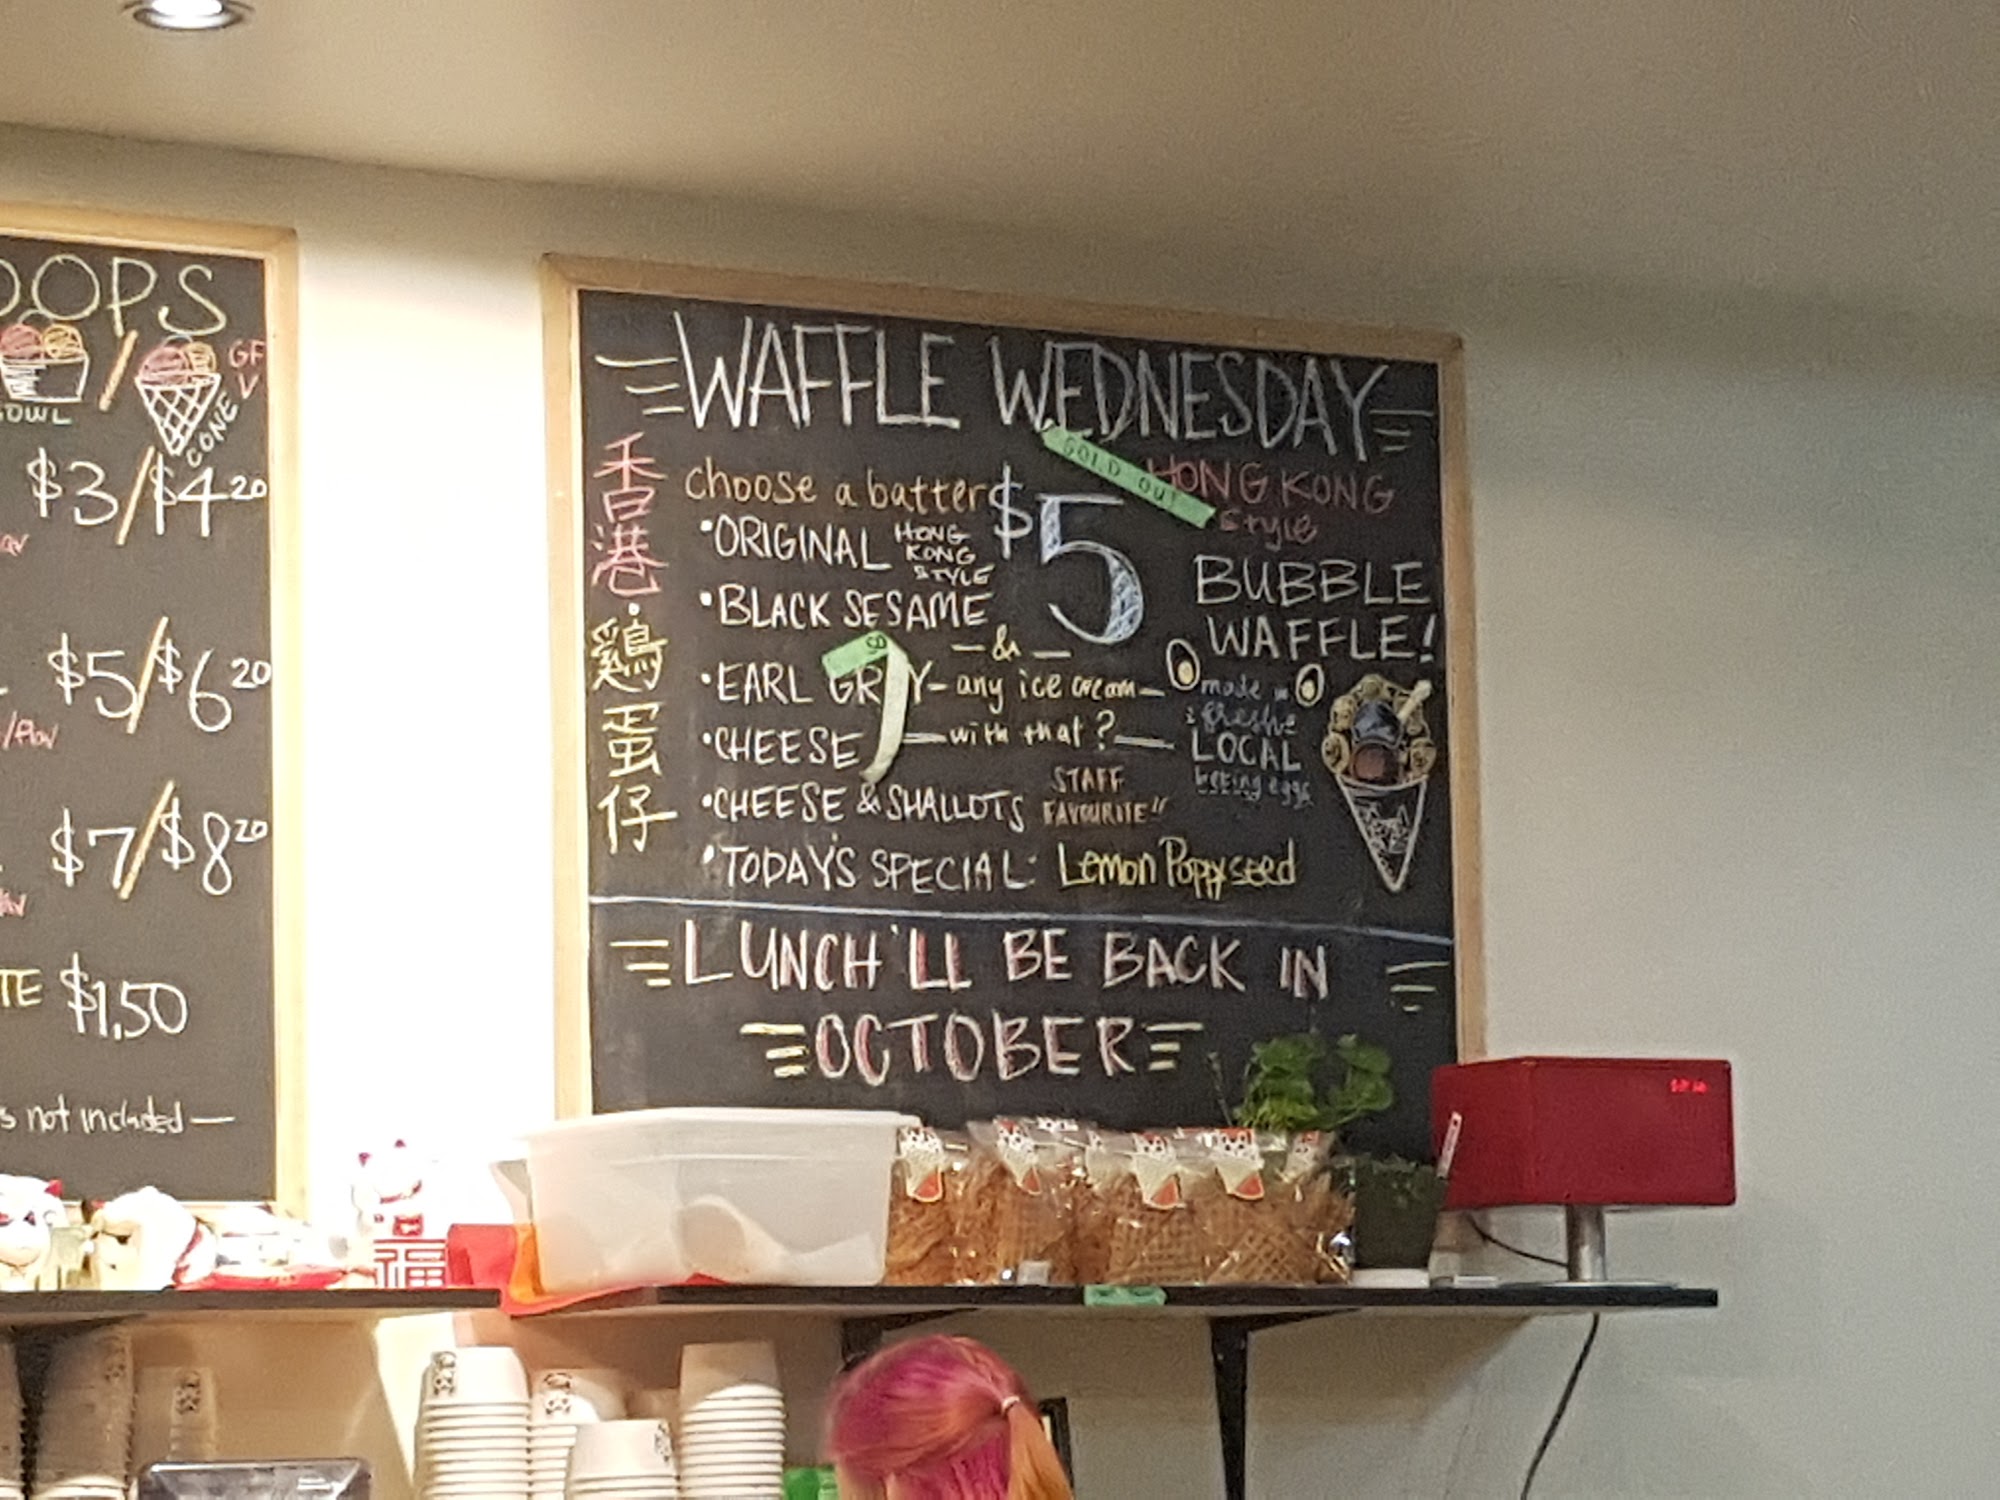 OOPS
GF
V
BOWL
CONE
$3/$4 20
$5/$6 20
/flav
$7/$8 20
TE $1.50
s not included —
WAFFLE WEDNESDAY
香港雞蛋仔
choose a batter
$5
SOLD OUT
HONG KONG
style
• ORIGINAL HONG KONG STYLE
• BLACK SESAME
BUBBLE
WAFFLE!
— & —
• EARL GREY — any ice cream —
• CHEESE — with that? —
made
LOCAL
eggs
• CHEESE & SHALLOTS
STAFF
FAVOURITE
• TODAY'S SPECIAL: Lemon Poppyseed
LUNCH'LL BE BACK IN
OCTOBER
福